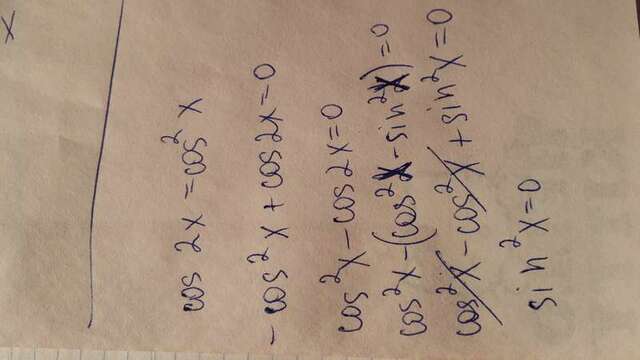 x
cos 2x = cos² x
- cos² x + cos 2x = 0
cos² x - cos 2x = 0
cos² x - (cos² x - sin² x) = 0
cos² x - cos² x + sin² x = 0
sin² x = 0